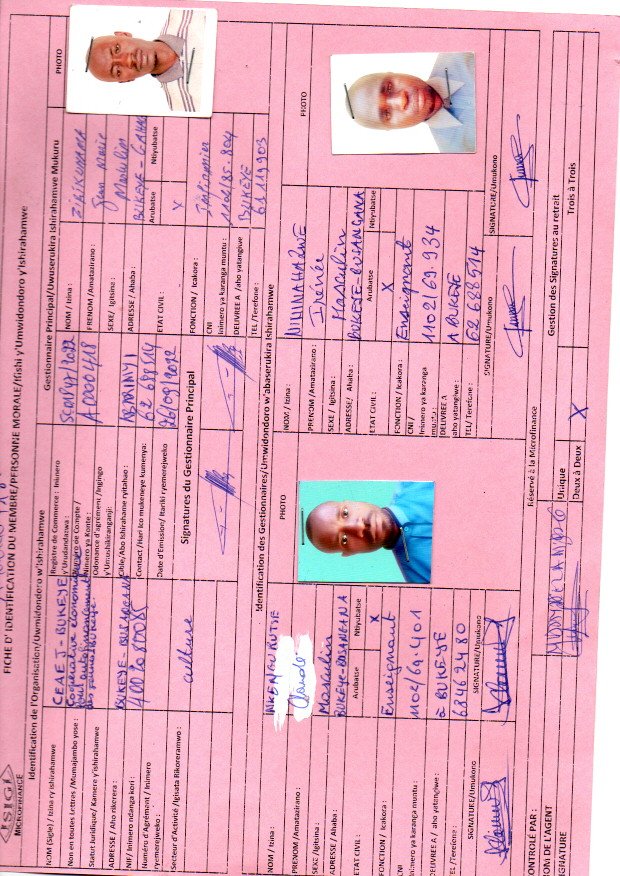 ISIGI
MICROFINANCE
FICHE D'IDENTIFICATION DU MEMBRE/PERSONNE MORALE/Ifishi y'Umwidondoro y'Ishirahamwe
Identification de l'Organisation/Uwmidondoro w'Ishirahamwe
NOM (Sigle) / Izina ry ishirahamwe CEAEJ-BUKEYE
Non en toutes Lettres /Mumajambo yose : Coopérative économique
pour autofinancement
des jeunes Bukeye
Statut Juridique/ Kamere y'ishirahamwe
ADRESSE / Aho rikorera : BUKEYE - BUSANGANA
NIF/ Inimero ndanga kori : 4002080085
Numéro d'Agrément / Inimero
ryemerejweko :
Secteur d'Activité /Igisata Rikoreramwo : culture
Registre de Commerce : Inimero
y'Urudandazwa :
Numéro de Compte /
Nimero ya Konte : A0000418
Odonance d'agrément /ngingo
y'Umushikiranganji:
Cible/Abo ishirahame ryitaho :
Contact /Hari ico mukeneye kumenya: 62 688514
Date d'Emission/ Itariki ryemerejweko 26/09/2022
Signatures du Gestionnaire Principal
Gestionnaire Principal/Uwuserukira Ishirahamwe Mukuru
PHOTO
NOM / Izina : ZIRIKUMANA
PRENOM /Amatazirano : Jean Marie
SEXE/ Igitsina : Masculin
ADRESSE / Ahaba : BUKEYE -
ETAT CIVIL : Arubatse Ntiyubatse
X
FONCTION / Icakora : Infirmier
CNI
Inimero ya karanga muntu : 1102/85.804
DELIVREE A /aho yatangiwe BUKEYE
TEL /Terefone : 61119903
Identification des Gestionnaires/Umwidondoro w'abaserukira Ishirahamwe
NOM / Izina : NKENGURUTSE
PRENOM /Amatazirano : Claude
SEXE /Igitsina : Masculin
ADRESSE / Ahaba : BUKEYE-BUSANGANA
ETAT CIVIL : Arubatse Ntiyubatse
X
FONCTION / Icakora : Enseignant
CNI
Inimero ya karanga muntu : 1102/64.401
DELIVREE A / aho yatangiwe : à BUKEYE
TEL /Terefone : 68462480
SIGNATURE/Umukono SIGNATURE/Umukono
PHOTO
NOM / Izina : NIHINAHAZWE
PRENOM /Amatazirano : Irénée
SEXE / Igitsina : Masculin
ADRESSE/ Ahaba : BUKEYE-BUSANGANA
ETAT CIVIL : Arubatse Ntiyubatse
X
FONCTION / Icakora : Enseignant
CNI /
Inimero ya karanga
muntu : 1102/69.934
DELIVREE A
aho yatangiwe : A BUKEYE
TEL/ Terefone : 62688514
SIGNATURE/Umukono SIGNATURE/Umukono
PHOTO
Réservé à la Microfinance
CONTROLÉ PAR :
NOM DE L'AGENT
SIGNATURE
Gestion des Signatures au retrait
Unique
Deux à Deux X
Trois à Trois